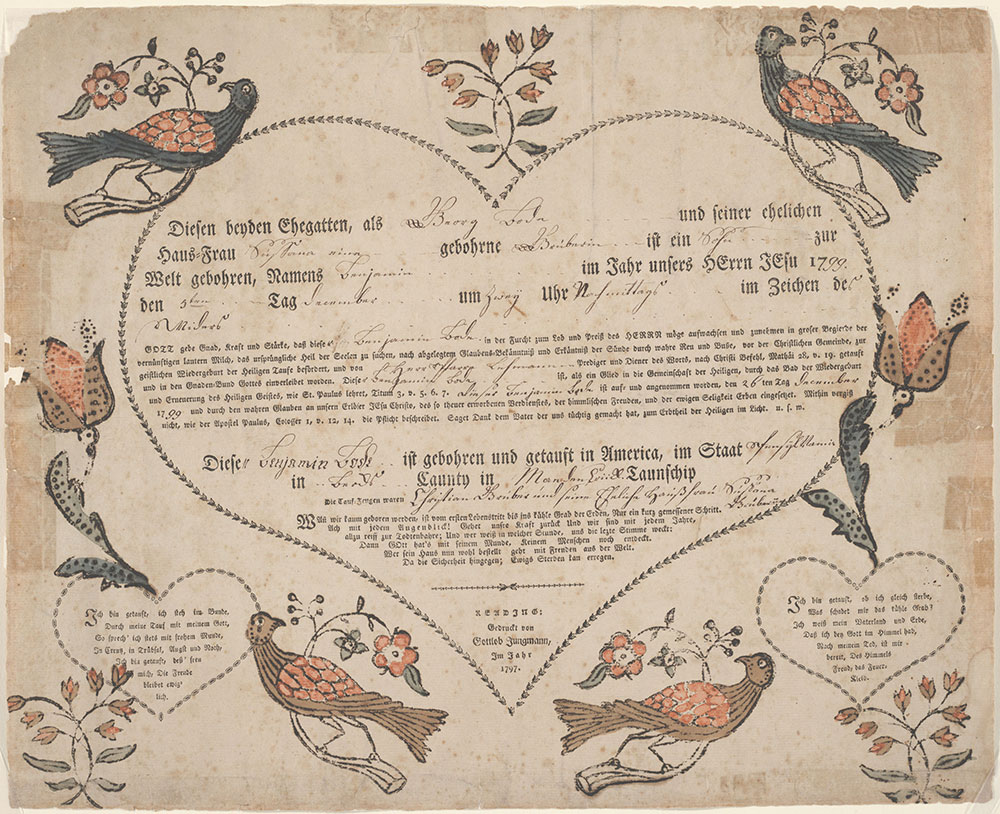 Diesen beyden Ehegatten, als Georg Bode und seiner ehelichen
Haus-Frau Sussana eine gebohrne Beuberin ist ein Sohn zur
Welt gebohren, Namens Benjamin im Jahr unsers HErrn JEsu 1799.
den 5ten Tag December um zwey Uhr Nachmittags im Zeichen des
Widers
GOTT gebe Gnad, Kraft und Stärke, daß dieser Benjamin Bode in der Furcht zum Lob und Preiß des HERRN möge aufwachsen und zunehmen in groser Begierde der
vernünftigen lautern Milch, das ursprüngliche Heil der Seelen zu suchen, nach abgelegtem Glaubens-Bekänntniß und Erkäntniß der Sünde durch wahre Reu und Buße, vor der Christlichen Gemeinde, zur
geistlichen Wiedergeburt der Heiligen Taufe befördert, und von Herr Pfarr Lehmann Prediger und Diener des Worts, nach Christi Befehl, Mathäi 28, v. 19. getauft
und in den Gnaden-Bund Gottes einverleibet worden. Dieser Benjamin Bode ist, als ein Glied in die Gemeinschaft der Heiligen, durch das Bad der Wiedergeburt
und Erneuerung des Heiligen Geistes, wie St. Paulus lehret, Titum 3, v. 5. 6. 7. Dieser Benjamin Bode ist auf- und angenommen worden, den 26ten Tag December
1799 und durch den wahren Glauben an unsern Erlöser JEsu Christo, des so theuer erworbenen Verdienstes, der himmlischen Freuden, und der ewigen Seligkeit Erben eingesetzt. Mithin vergiß
nicht, wie der Apostel Paulus, Colosser 1, v. 12, 14. die Pflicht beschreibet. Saget Dank dem Vater der uns tüchtig gemacht hat, zum Erbtheil der Heiligen im Licht. u. s. w.
Dieser Benjamin Bode ist gebohren und getauft in America, im Staat Pensylvania
in Berks Caunty in Taunschip
Die Tauf-Zeugen waren Christian Beuber und seine Eheliche Haußfrau Sussana
Beuberin
WAn wir kaum geboren werden, ist vom ersten Lebenstritt bis ins kühle Grab der Erden, Nur ein kurz gemessener Schritt.
Ach mit jedem Augenblick! Gehet unsre Kraft zurück Und wir sind mit jedem Jahre,
allzu reiff zur Todtenbahre; Und wer weiß in welcher Stunde, uns die lezte Stimme weckt:
Dann GOtt hat's mit seinem Munde, Keinem Menschen noch entdeckt.
Wer sein Haus nun wohl bestellt geht mit Freuden aus der Welt.
Da die Sicherheit hingegen; Ewigs Sterben kan erregen.
Ich bin getaufte, ich steh im Bunde,
Durch meine Tauf mit meinem Gott,
So sprech' ich stets mit frohem Munde,
In Creutz, in Trübsal, Angst und Noth,
Ich bin getauft, deß' freu
mich; Die Freude
bleibet ewig'
lich.
READING:
Gedruckt von
Gottlob Jungmann,
Im Jahr
1797.
Ich bin getauft, ob ich gleich sterbe,
Was schadet mir das kühle Grab?
Ich weiß mein Vaterland und Erbe,
Daß ich bey Gott im Himmel hab,
Nach meinem Tod, ist mir
bereit, Des Himmels
Freud, das Feuer-
Kleid.